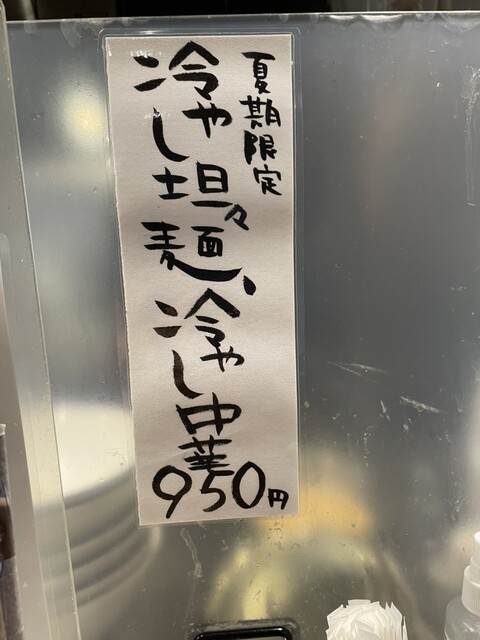 夏期限定
冷やし坦々麺、冷やし中華
950円